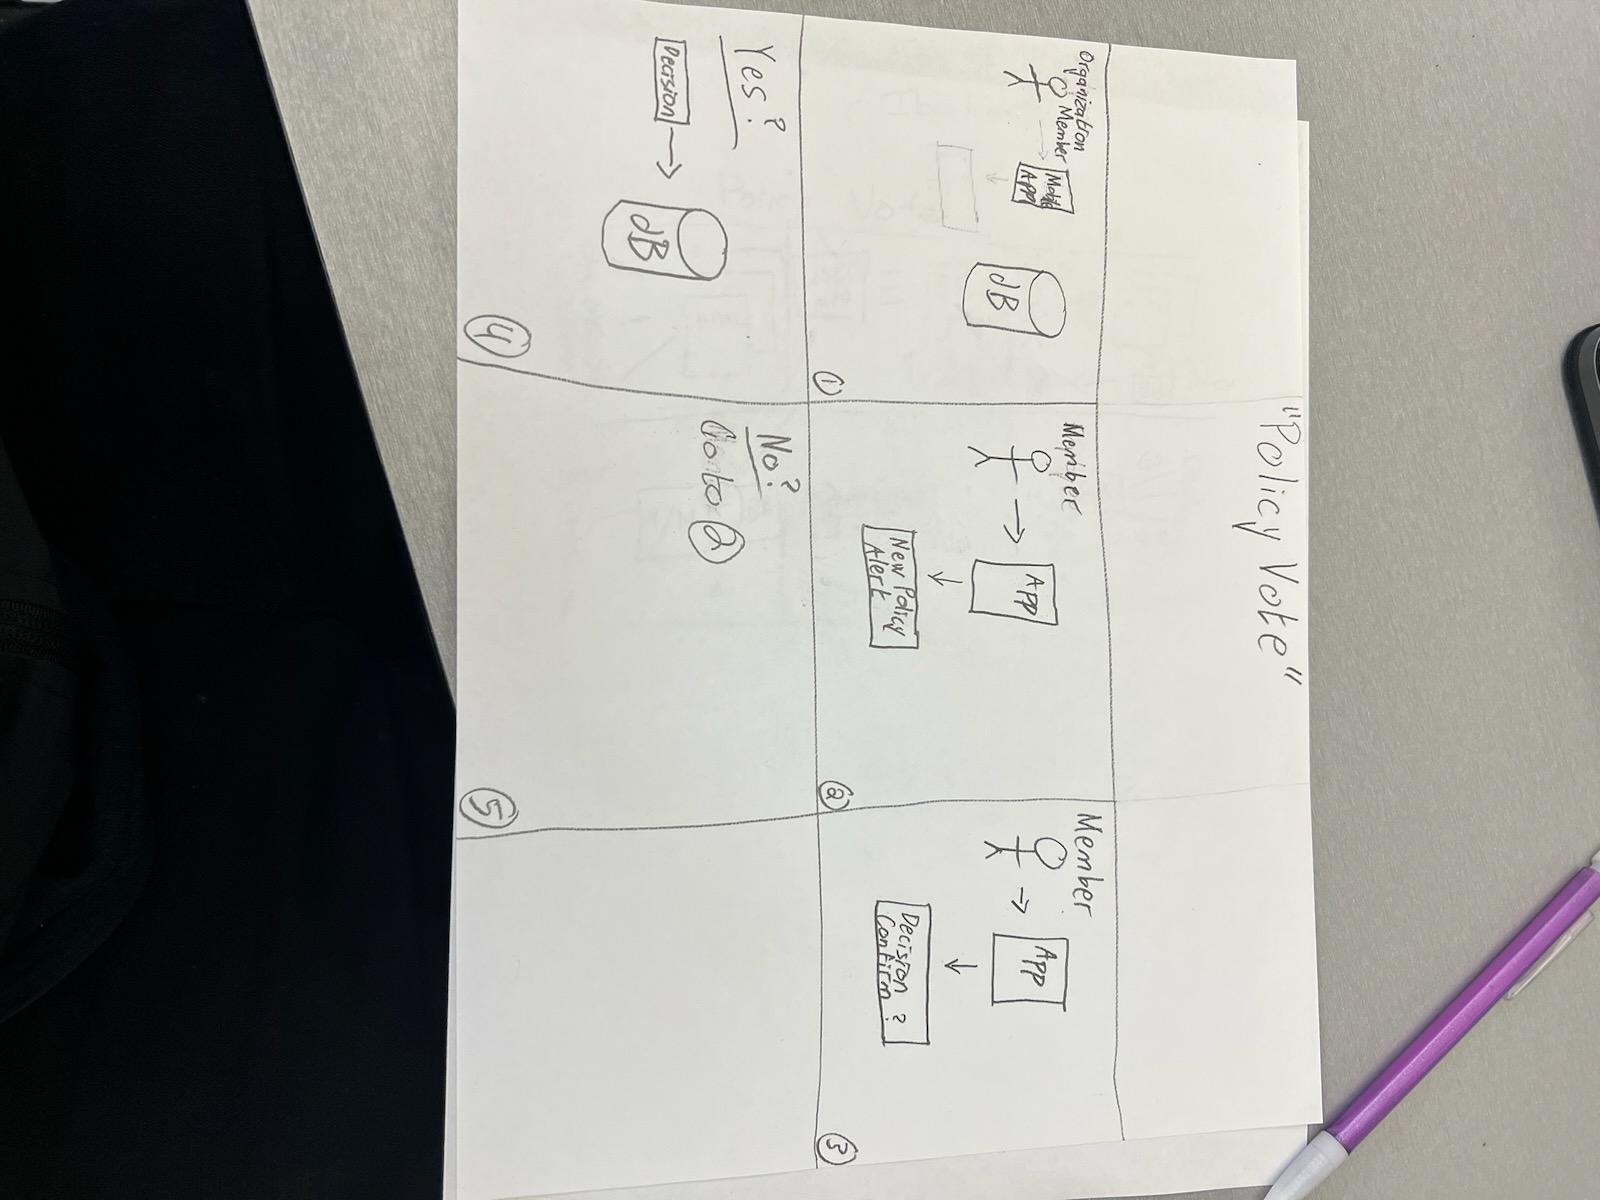 "Policy Vote"
Organization
Member
Mobile
APP
dB
①
Member
APP
New Policy
Alert
②
Member
APP
Decision
Confirm ?
③
Yes?
Decision
dB
④
No?
②
⑤